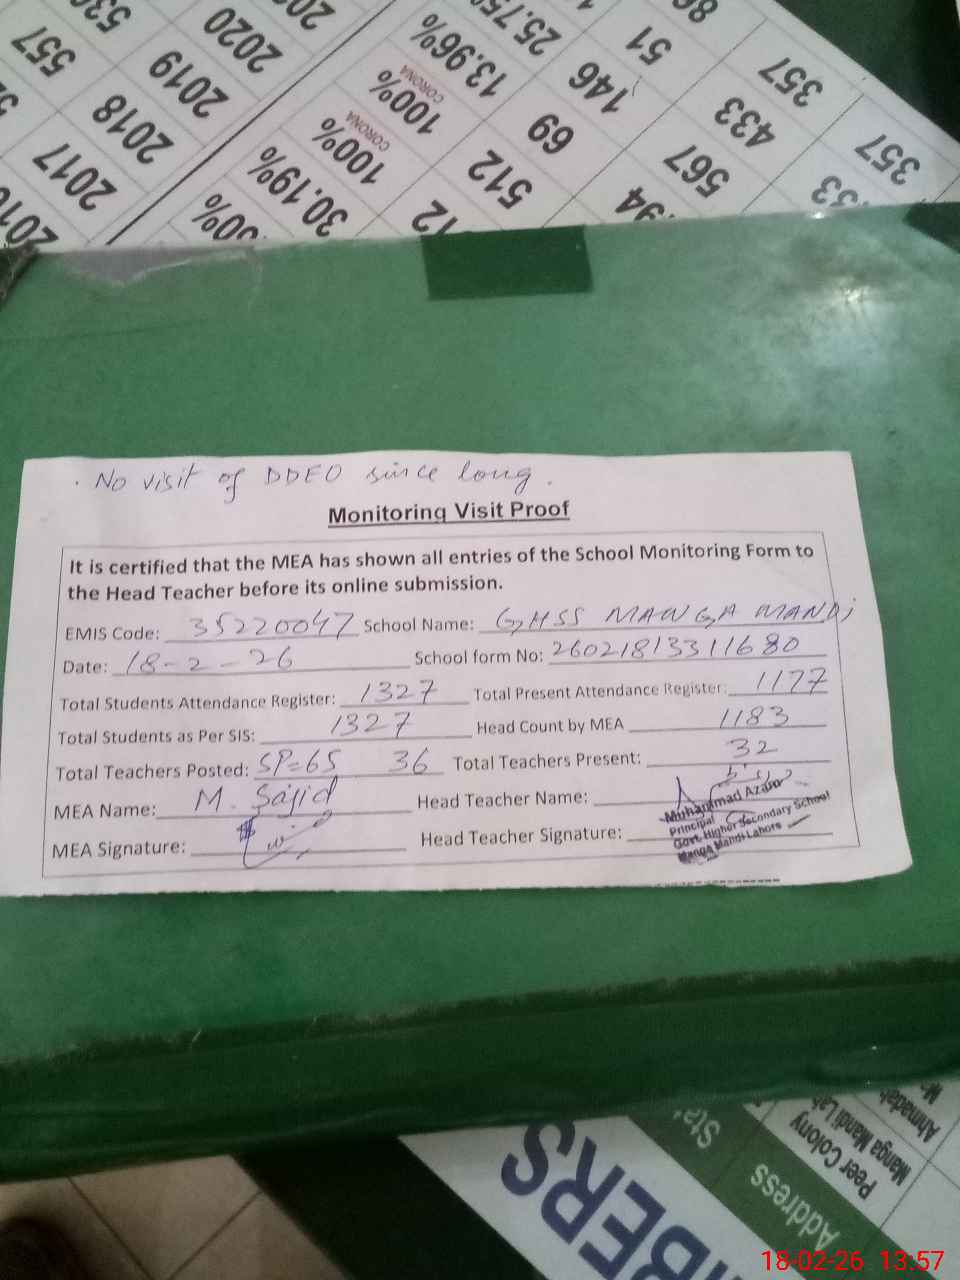 530
557
2017
2018
2019
2020
30.19%
100%
CORONA
100%
CORONA
13.96%
25.75
512
69
146
51
567
433
357
357
. No visit of DDEO since long.
Monitoring Visit Proof
It is certified that the MEA has shown all entries of the School Monitoring Form to
the Head Teacher before its online submission.
EMIS Code: 35220047 School Name: GHSS MANGA MANDi
Date: 18-2-26 School form No: 26021813311680
Total Students Attendance Register: 1327 Total Present Attendance Register: 1177
Total Students as Per SIS: 1327 Head Count by MEA 1183
Total Teachers Posted: SP=65 36 Total Teachers Present: 32
MEA Name: M. Sajid Head Teacher Name:
MEA Signature: Head Teacher Signature:
Muhammad Azam
Principal
Govt. Higher Secondary School
Manga Mandi Lahore
BERS
Address
Peer Colony
Manga Mandi
18-02-26 13:57